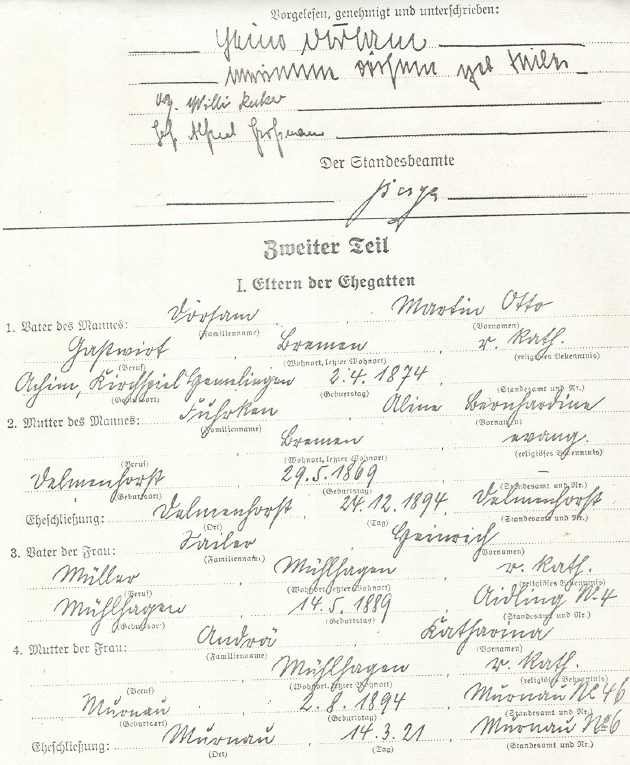 Vorgelesen, genehmigt und unterschrieben:
Heino Dörham
Dörham geb
gez. Willi
gez. Alfred Großmann
Der Standesbeamte
Zweiter Teil
I. Eltern der Ehegatten
Dörham Martin Otto
1. Vater des Mannes: (Familienname) (Vornamen)
Gastwirt Bremen r. Kath.
(Beruf) (Wohnort, letzter Wohnort) (religiöses Bekenntnis)
Achim, Kirchspiel 2.4.1874
(Geburtsort) (Geburtstag) (Standesamt und Nr.)
Fuhrken Aline Bernhardine
2. Mutter des Mannes: (Familienname) (Vornamen)
Bremen evang.
(Beruf) (Wohnort, letzter Wohnort) (religiöses Bekenntnis)
Delmenhorst 29.5.1869 –
(Geburtsort) (Geburtstag) (Standesamt und Nr.)
Eheschließung: Delmenhorst 24.12.1894 Delmenhorst
(Ort) (Tag) (Standesamt und Nr.)
Sailer Heinrich
3. Vater der Frau: (Familienname) (Vornamen)
Müller Mühlhagen r. Kath.
(Beruf) (Wohnort, letzter Wohnort) (religiöses Bekenntnis)
Mühlhagen 14.5.1889 Aidling No 4
(Geburtsort) (Geburtstag) (Standesamt und Nr.)
Andrä Katharina
4. Mutter der Frau: (Familienname) (Vornamen)
Mühlhagen r. Kath.
(Beruf) (Wohnort, letzter Wohnort) (religiöses Bekenntnis)
Murnau 2.8.1894 Murnau No 46
(Geburtsort) (Geburtstag) (Standesamt und Nr.)
Eheschließung: Murnau 14.3.21 Murnau No 6
(Ort) (Tag) (Standesamt und Nr.)